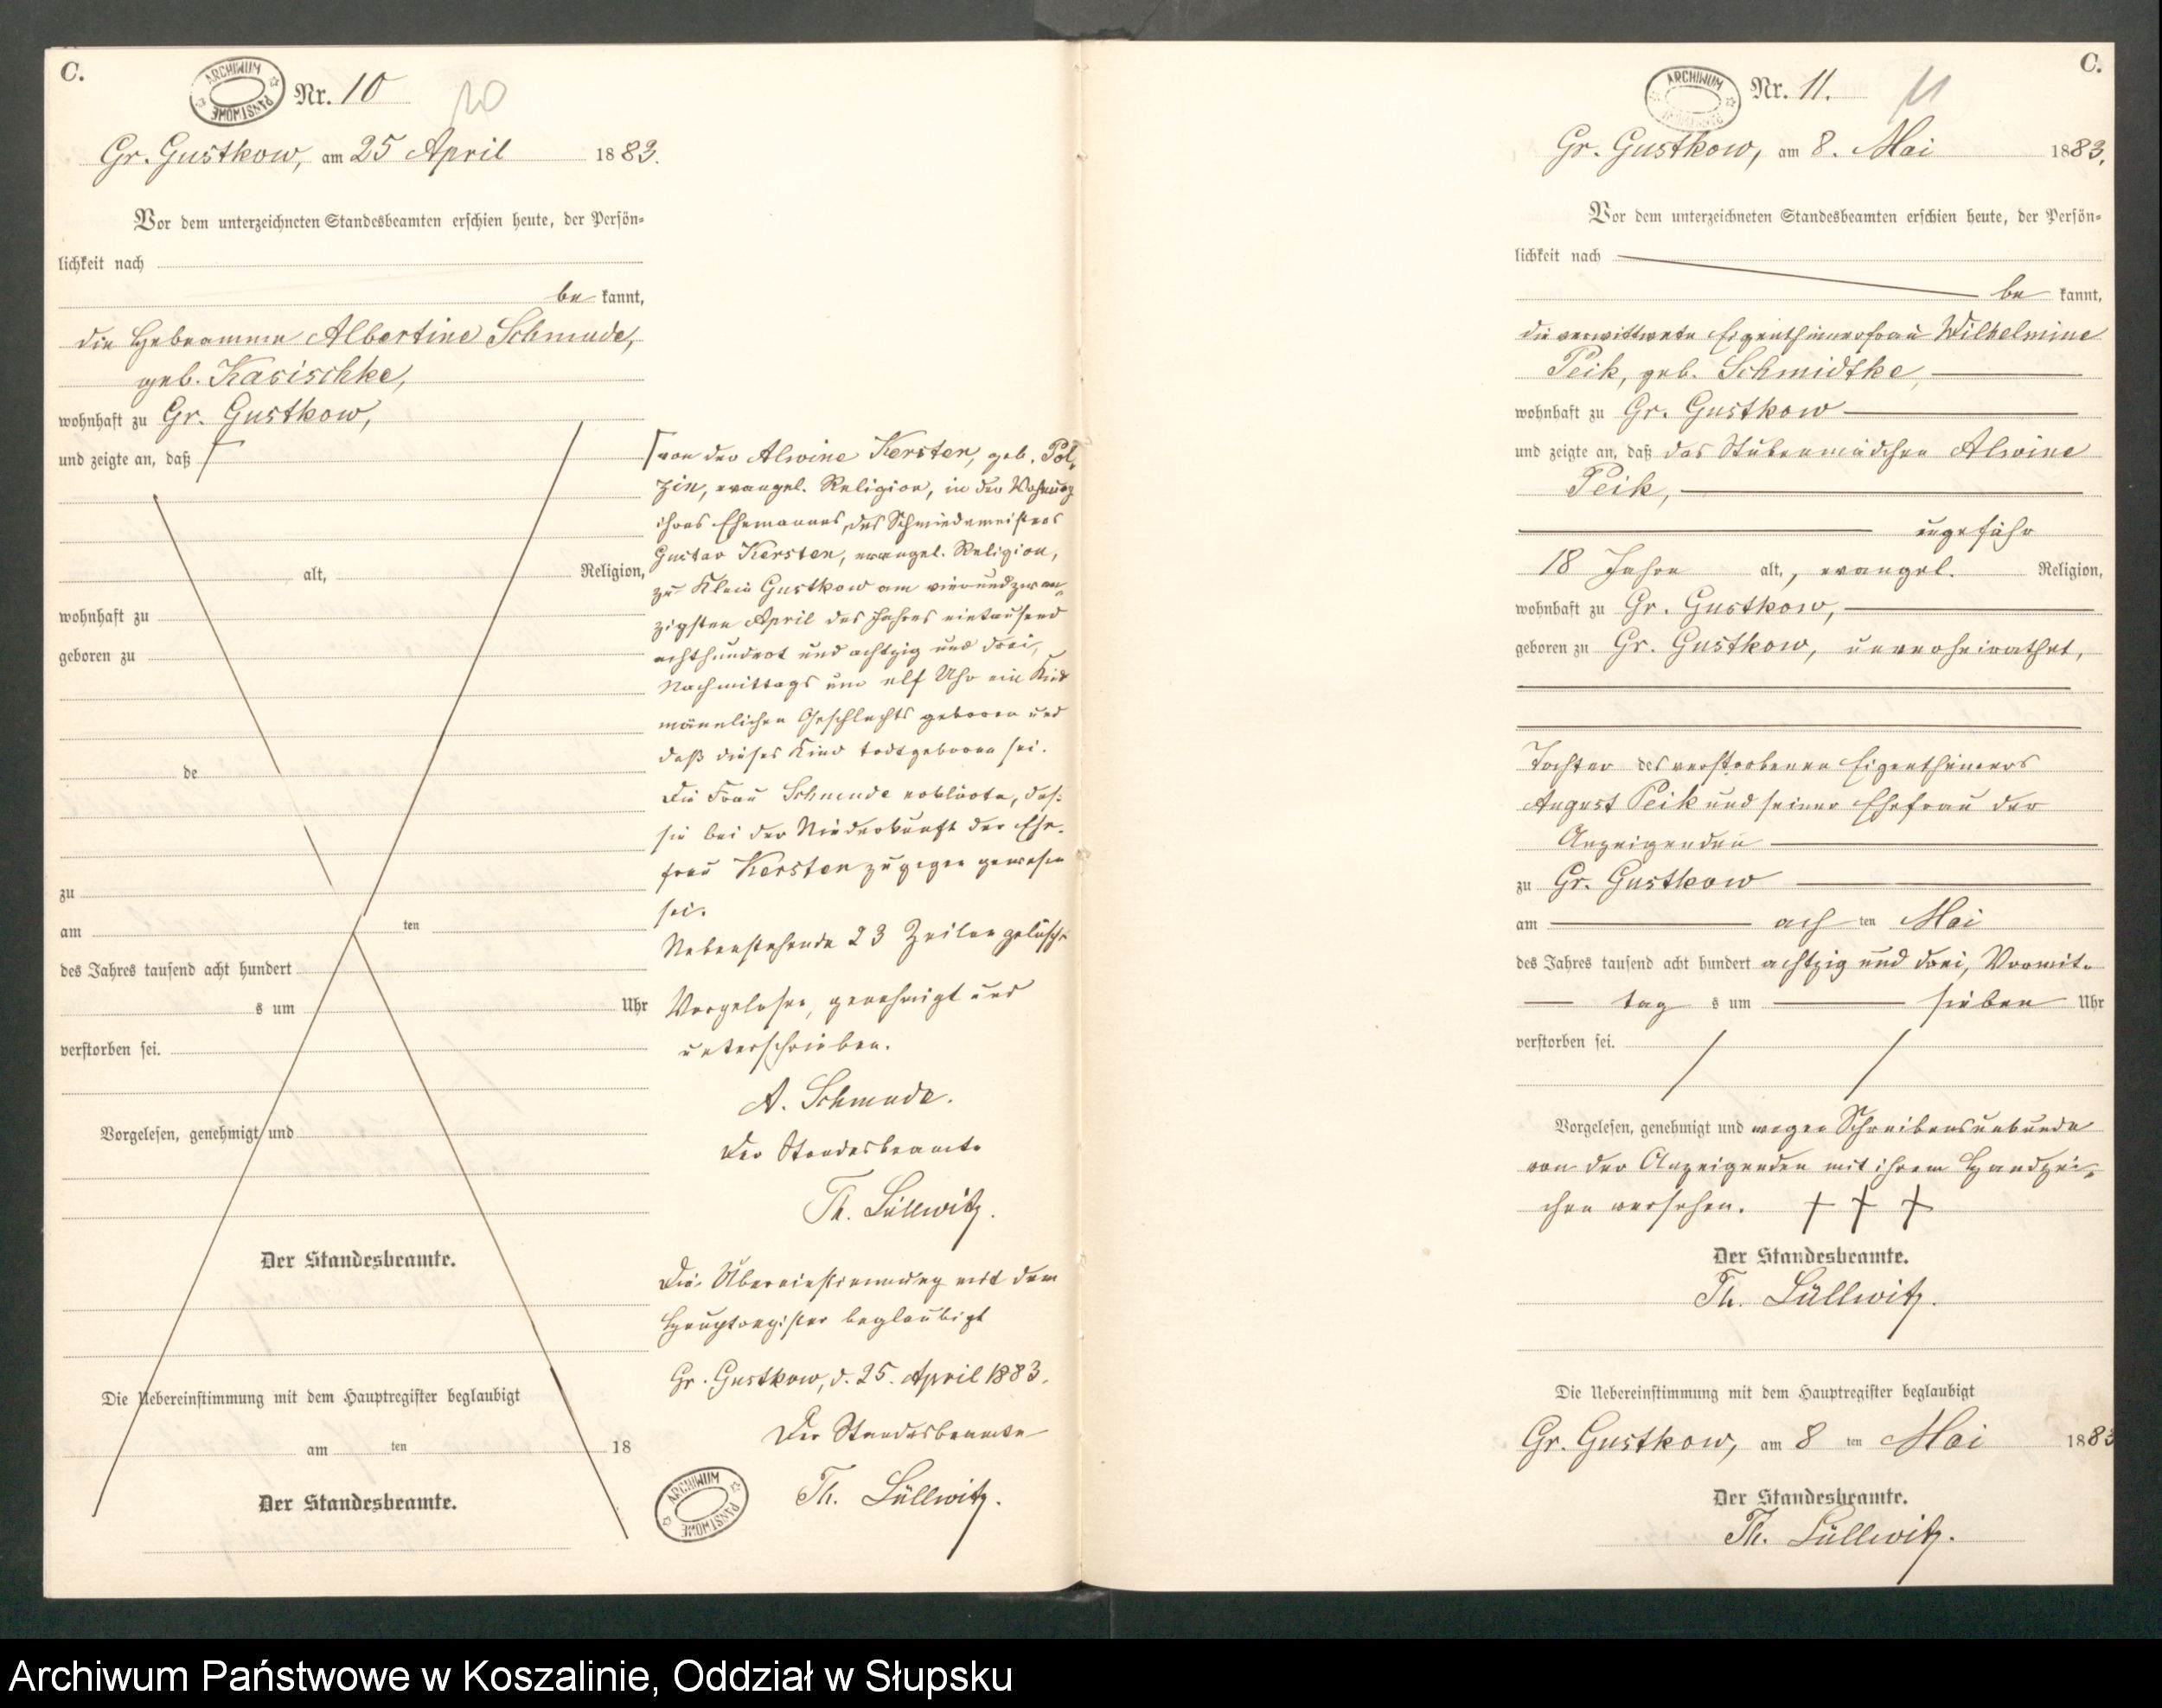 C.
ARCHIWUM PAŃSTWOWE
Nr. 10
10
Gr. Gustkow, am 25 April 1883.
Vor dem unterzeichneten Standesbeamten erschien heute, der Persön-
lichkeit nach
be kannt,
die Hebeamme Albertine Schmude,
geb. Kasischke,
wohnhaft zu Gr. Gustkow,
und zeigte an, daß
alt, Religion,
wohnhaft zu
geboren zu
de
zu
am ten
des Jahres tausend acht hundert
s um Uhr
verstorben sei.
Vorgelesen, genehmigt und
Der Standesbeamte.
Die Uebereinstimmung mit dem Hauptregister beglaubigt
am ten 18
Der Standesbeamte.
von der Alwine Kersten, geb. Pol-
zin, evangel. Religion, in der Wohnung
ihres Ehemannes, des Schmiedemeisters
Gustav Kersten, evangel. Religion,
zu Klein Gustkow am vierundzwan-
zigsten April des Jahres eintausend
achthundert und achtzig und drei,
Nachmittags um elf Uhr ein Kind
männlichen Geschlechts geboren und
daß dieses Kind todtgeboren sei.
Die Frau Schmude erklärte, daß
sie bei der Niederkunft der Ehe-
frau Kersten zugegen gewesen
sei.
Nebenstehende 23 Zeilen gelöscht
Vorgelesen, genehmigt und
unterschrieben.
A. Schmude.
Der Standesbeamte
Th. Lüllwitz.
Die Übereinstimmung mit dem
Hauptregister beglaubigt
Gr. Gustkow, d. 25. April 1883.
Der Standesbeamte
Th. Lüllwitz.
ARCHIWUM PAŃSTWOWE
C.
ARCHIWUM
Nr. 11.
11
Gr. Gustkow, am 8. Mai 1883.
Vor dem unterzeichneten Standesbeamten erschien heute, der Persön-
lichkeit nach
be kannt,
die verwittwete Eigenthümerfrau Wilhelmine
Peik, geb. Schmidtke,
wohnhaft zu Gr. Gustkow
und zeigte an, daß das Stubenmädchen Alwine
Peik,
ungefähr
18 Jahre alt, evangel. Religion,
wohnhaft zu Gr. Gustkow,
geboren zu Gr. Gustkow, unverheirathet,
Tochter des verstorbenen Eigenthümers
August Peik und seiner Ehefrau der
Anzeigenden
zu Gr. Gustkow
am ach ten Mai
des Jahres tausend acht hundert achtzig und drei, Vormit-
tag s um sieben Uhr
verstorben sei.
Vorgelesen, genehmigt und wegen Schreibensunkunde
von der Anzeigenden mit ihrem Handzei-
chen versehen. + + +
Der Standesbeamte.
Th. Lüllwitz.
Die Uebereinstimmung mit dem Hauptregister beglaubigt
Gr. Gustkow, am 8 ten Mai 1883
Der Standesbeamte.
Th. Lüllwitz.
Archiwum Państwowe w Koszalinie, Oddział w Słupsku